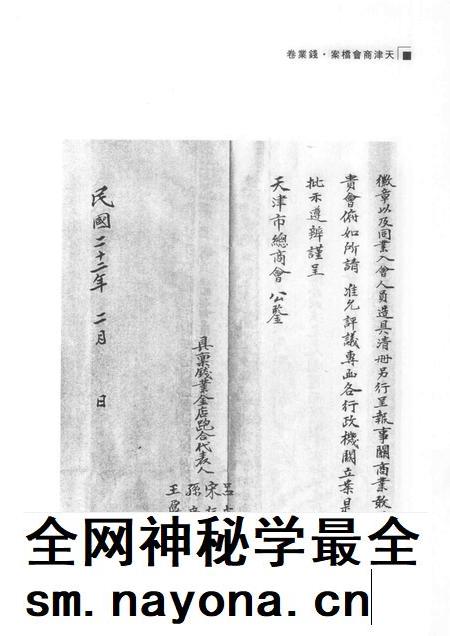 天津商會檔案·錢業卷
徽章以及同業入會人員造具清冊另行呈報事關商業
貴會俯如所請 准允評議專函各行政機關立案
批示遵辦謹呈
天津市總商會 公鑒
具稟錢業金店跑合代表人
呂
宋
孫
王
民國二十二年 二月 日
全网神秘学最全
sm.nayona.cn